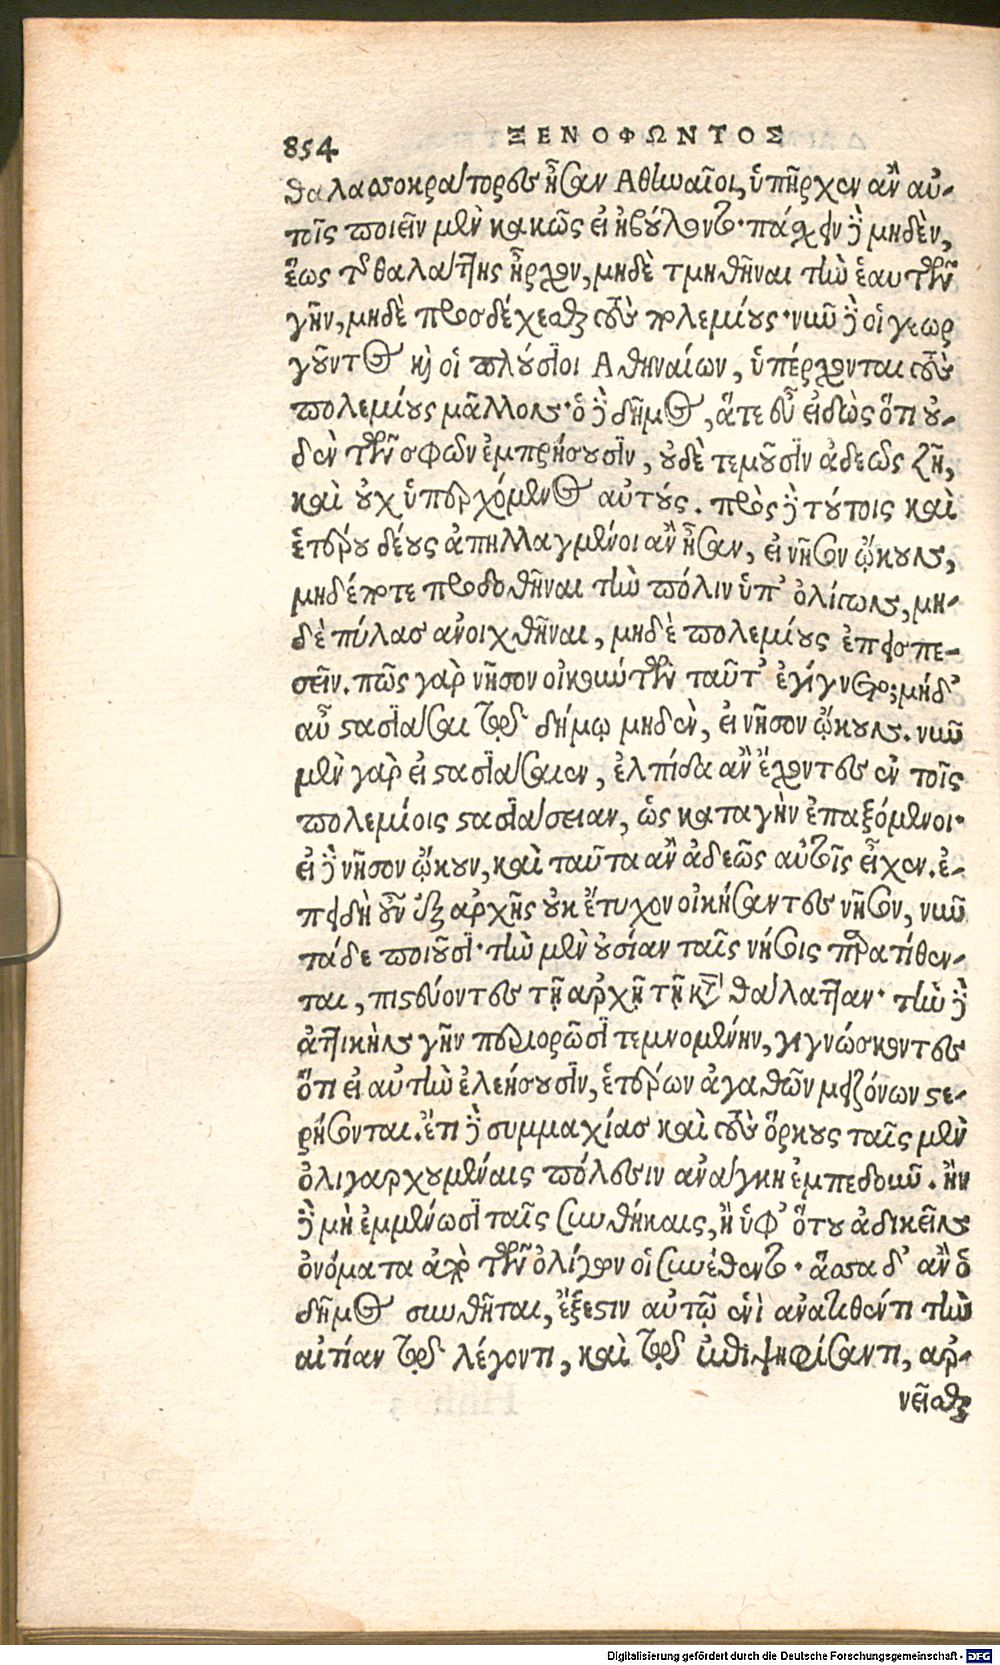 854
ΞΕΝΟΦΩΝΤΟΣ
θαλασσοκράτορες ἦσαν Ἀθηναῖοι, ὑπῆρχεν ἂν αὐ-
τοῖς ποιεῖν μὲν κακῶς εἰ ἠβούλοντο· πάσχειν δὲ μηδὲν,
ἕως τῆς θαλάττης ἦρχον, μηδὲ τμηθῆναι τὴν ἑαυτῶν
γῆν, μηδὲ προσδέχεσθαι τοὺς πολεμίους· νῦν δὲ οἱ γεωρ
γοῦντες καὶ οἱ πλούσιοι Ἀθηναίων, ὑπέρχονται τοὺς
πολεμίους μᾶλλον· ὁ δὲ δῆμος, ἅτε εὖ εἰδὼς ὅτι οὐ-
δὲν τῶν σφῶν ἐμπρήσουσιν, οὐδὲ τεμοῦσιν ἀδεῶς ζῇ,
καὶ οὐχ ὑπερχόμενος αὐτούς. πρὸς δὲ τούτοις καὶ
ἑτέρου δέους ἀπηλλαγμένοι ἂν ἦσαν, εἰ νῆσον ᾤκουν,
μηδέποτε προδοθῆναι τὴν πόλιν ὑπ' ὀλίγων, μη-
δὲ πύλας ἀνοιχθῆναι, μηδὲ πολεμίους ἐπεισπε-
σεῖν. πῶς γὰρ νῆσον οἰκούντων ταῦτ' ἐγίγνετο; μήδ'
αὖ στασιάσαι τῷ δήμῳ μηδὲν, εἰ νῆσον ᾤκουν. νῦν
μὲν γὰρ εἰ στασιάσαιεν, ἐλπίδα ἂν ἔχοντες ἐν τοῖς
πολεμίοις στασιάσειαν, ὡς κατὰ γὴν ἐπαξόμενοι·
εἰ δὲ νῆσον ᾤκουν, καὶ ταῦτα ἂν ἀδεῶς αὐτοῖς εἶχεν. ἐ-
πειδὴ οὖν ἐξ ἀρχῆς οὐκ ἔτυχον οἰκήσαντες νῆσον, νῦν
τάδε ποιοῦσι· τὴν μὲν οὐσίαν ταῖς νήσοις παρατίθεν-
ται, πιστεύοντες τῇ ἀρχῇ τῇ κατὰ θάλατταν· τὴν δὲ
ἀττικὴν γῆν περιορῶσι τεμνομένην, γιγνώσκοντες
ὅτι εἰ αὐτὴν ἐλεήσουσιν, ἑτέρων ἀγαθῶν μειζόνων στε-
ρήσονται. ἔτι δὲ συμμαχίας καὶ τοὺς ὅρκους ταῖς μὲν
ὀλιγαρχουμέναις πόλεσιν ἀνάγκη ἐμπεδοῦν. ἢν
δὲ μὴ ἐμμένωσι ταῖς συνθήκαις, ἢ ὑφ' ὅτου ἀδικεῖν
ὀνόματα ἀπὸ τῶν ὀλίγων οἳ συνέθεντο· ἅσσα δ' ἂν ὁ
δῆμος συνθῆται, ἔξεστιν αὐτῷ ἑνὶ ἀνατιθέντι τὴν
αἰτίαν τῷ λέγοντι, καὶ τῷ ἐπιψηφίσαντι, ἀρ-
νεῖσθαι
Digitalisierung gefördert durch die Deutsche Forschungsgemeinschaft - DFG